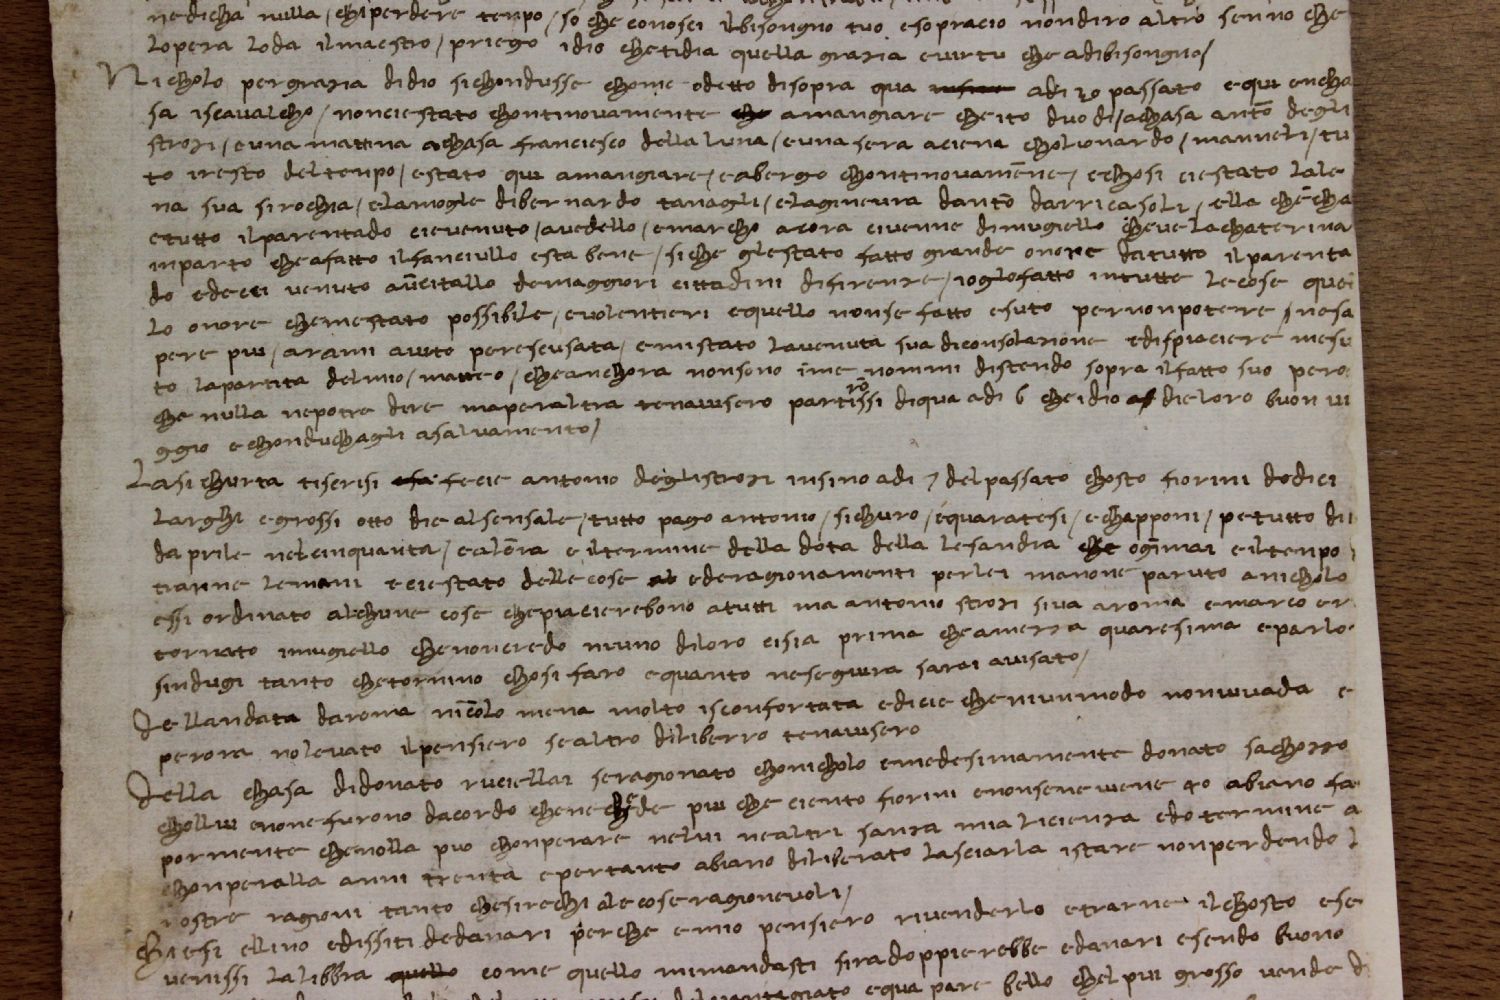 ne dicha nulla / chi perdere tenpo / so che conosci il bisongno tuo e sopracio non diro altro senno che
lopera loda il maestro / priego idio chetidia quella grazia e virtu che adi bisongno /
Nicholo per grazia di dio si chondusse chome o detto di sopra qua adi 20 passato e qui en cha
sa iscavalcho / non ci e stato chontinovamente amangiare che ito duo di / achasa anto degli
strozi / e una mattina achasa franciesco della luna / e una sera aciena cholionardo / manneli / tu
to iresto del tenpo / e stato qui amangiare / e abergo chontinovamente / e chosi ci e stato la le
na sua sirochia / e la mogle di bernardo tanagli / e la ginevra danto darricasoli / ella che cha
e tutto il parentado ci e venuto / avedello / e marcho acora ci venne di mugiello che ve la chaterina
inparto che a fatto il fanciullo e sta bene / si che gle stato fatto grande onore da tutto il parenta
do ed ecci venuto a vicitallo de maggiori cittadini di firenze / io glo fatto in tutte le cose quel
lo onore che me stato possibile / e volentieri e quello nonse fatto e suto per non potere / ne sa
pere piu / arami auto perescusata / e mi stato la venuta sua di consolazione e dispiaciere mesu
to la partita del mio / matteo / che anchora non sono i me no mi distendo sopra il fatto suo pero
che nulla ne potre dire ma per altra tenavisero partirossi di qua adi 6 che idio die loro buon vi
ggio e chonduchagli a salvamento /
La sichurta ti scrisi fecie antonio degli strozi insino adi 7 del passato chosto fiorini dodici
larghi e grossi otto die al sensale / tutto pago antonio / sichuro / e quaratesi / e chapponi / pe tutto di
da prile nel cinquanta / e alora e il termine della dota della lesandra ogimai e il tenpo
trarne le mani e ci e stato delle cose ed e ragionamenti per lei ma none paruto a nicholo
essi ordinato alchune cose che piacierebono a tutti ma antonio strozi si va a roma e marco e r
tornato in mugiello che non credo niuno di loro ci sia prima che a mezza quaresima e par lo
sindugi tanto che tornino chosi faro e quanto ne seguira sarai avisato /
Dellandata da roma nicolo mena molto isconfortata e dicie che niun modo non vi vada e
per ora no levato il pensiero se altro diliberro tenavisero
Della chasa di donato ruciellai se ragionato cho nicholo e medesimamente donato sachozzo
chollui e none furono dacordo che ne chiede piu che ciento fiorini e non se ne viene 40 abiano fa
pormente che nolla puo chonperare ne lui ne altri sanza mia licienza ed o termine a
chonperalla anni trenta e pertanto abiano diliberato lasciarla istare non perdendo l
vostre ragioni tanto che si rechi a le cose ragionevoli /
Chiesi el lino e dissiti de danari perche e mio pensiero rivenderlo e trarne il chosto e se
venissi la libbra come quello mi mandasti si radoppierebbe e danari e sendo buono
e qua pare bello chel piu grosso vende di